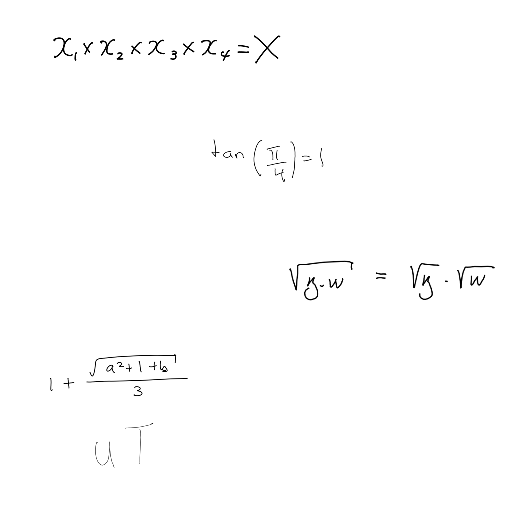 x₁ × x₂ × x₃ × x₄ = X
tan(π/4) = 1
√(y·w) = √y · √w
1 + √(a² + 1 + b)/3
u T